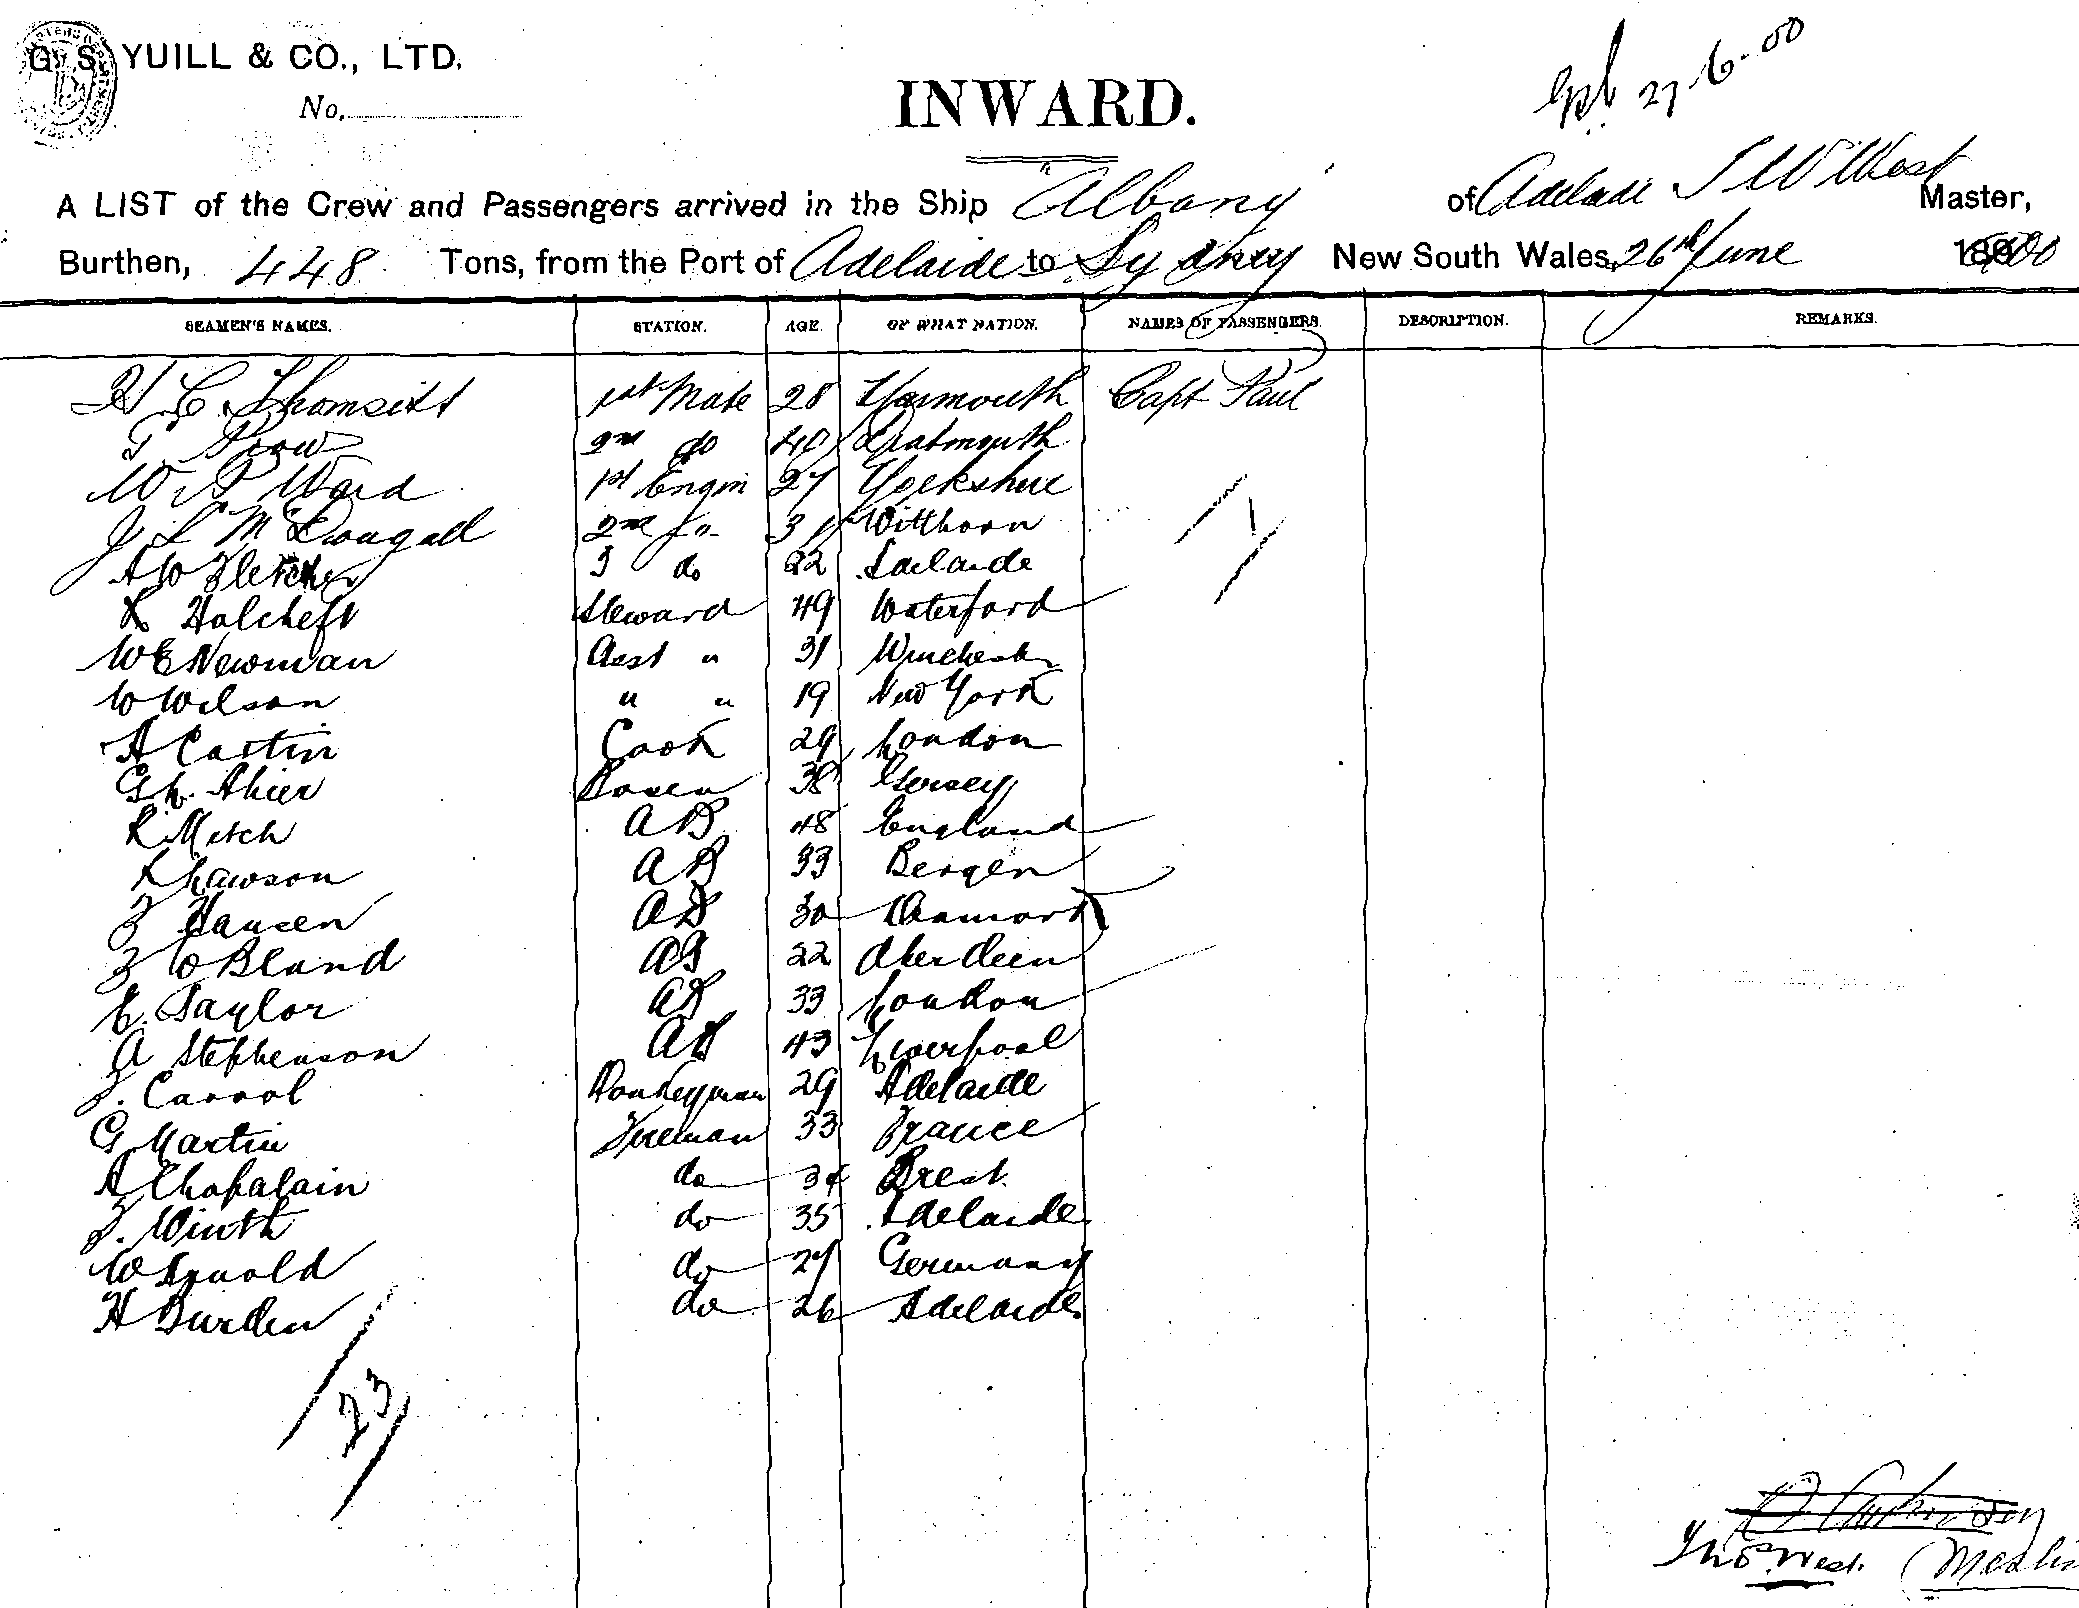 G. S. YUILL & CO., LTD.
No.
INWARD.
27-6-00
A LIST of the Crew and Passengers arrived in the Ship "Albany" of Adelaide T W West Master,
Burthen, 448 Tons, from the Port of Adelaide to Sydney New South Wales, 26th June 1900
SEAMEN'S NAMES. STATION. AGE. OF WHAT NATION. NAMES OF PASSENGERS. DESCRIPTION. REMARKS.
H C Thomsitt 1st Mate 28 Yarmouth Capt Paul
T Prow 2nd do 40 Dartmouth
W P Ward 1st Engin 27 Yorkshire
J L McDougall 2nd do 31 Witthorn
A W Fletcher 3 do 22 Adelaide
Holcheft Steward 49 Waterford
W E Newman Asst " 31 Winchester
W Wilson " " 19 New York
A Castin Cook 29 London
G L. Ahier Bosen 38 Jersey
R Metch AB 48 England
Lawson AB 33 Bergen
F Hansen AB 30 Denmark
F W Bland AB 22 Aberdeen
E. Taylor AB 33 London
A Stephenson AB 43 Liverpool
J. Carrol Donkeyman 29 Adelaide
G Martin Fireman 33 France
A Chopalain do 34 Brest
J. Winth do 35 Adelaide
W Arnold do 27 Germany
H Burden do 26 Adelaide
1
23
Thos West